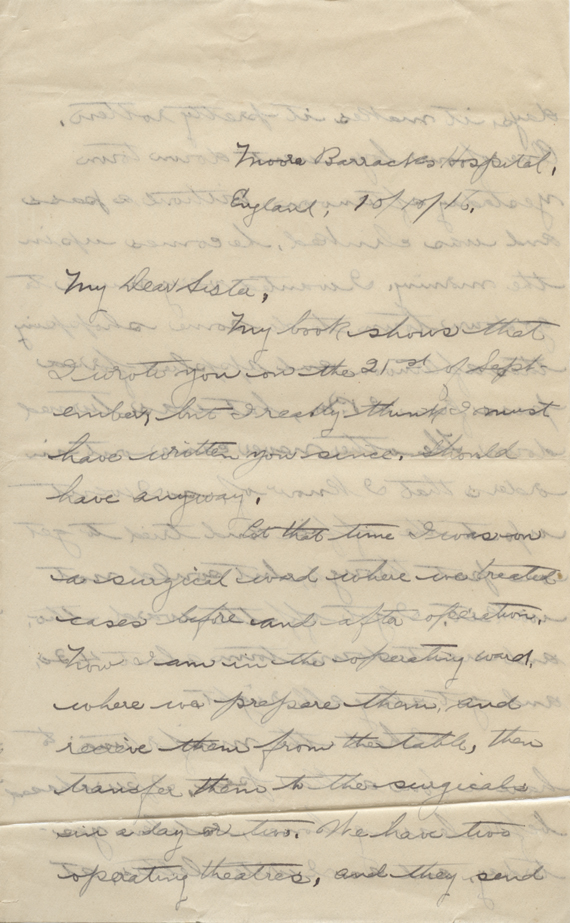 Moore Barracks Hospital,
England, 10/10/16.
My Dear Sister,
My book shows that
I wrote you on the 21st of Sept-
ember, but I really think I must
have written you since. Should
have anyway.
At that time I was on
a surgical ward where we treated
cases before and after operation.
Now am in the operating ward,
where we prepare them, and
receive them from the table, then
transfer them to the surgicals
in a day or two. We have two
operating theatres, and they send